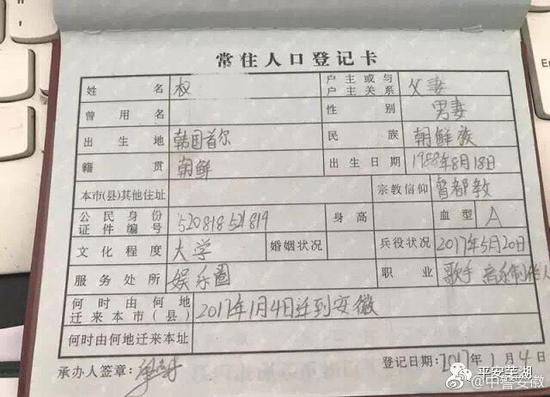 常住人口登记卡
姓名 权 户主或与户主关系 父妻
曾用名 性别 男妻
出生地 韩国首尔 民族 朝鲜族
籍贯 朝鲜 出生日期 1988年8月18日
本市(县)其他住址 宗教信仰
公民身份证件编号 520818521819 身高 血型 A
文化程度 大学 婚姻状况 兵役状况 2017年5月20日
服务处所 娱乐圈 职业 歌手 音乐制作人
何时由何地迁来本市(县) 2017年1月4日迁到安徽
何时由何地迁来本址
承办人签章: 登记日期:2017年1月4日
@平安芜湖
@中警安徽